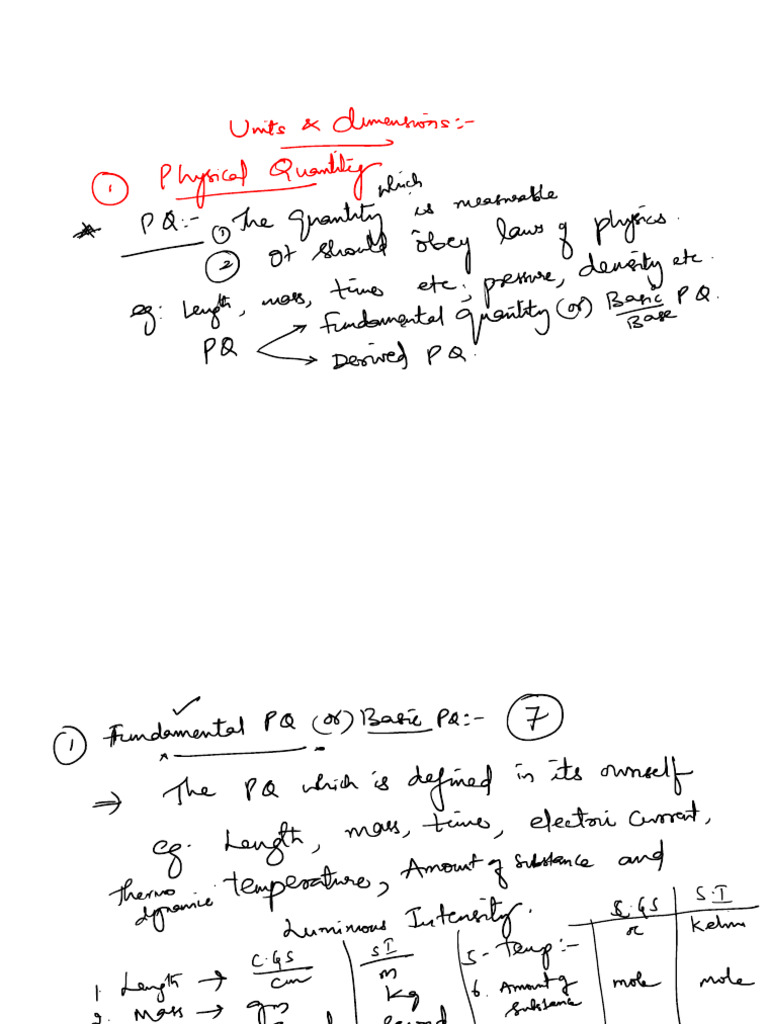 Units & dimensions:-
① Physical Quantity
* PQ:- ① The quantity which is measurable
② It should obey laws of physics.
eg: Length, mass, time etc; pressure, density etc.
PQ → Fundamental Quantity (or) Basic PQ.
Base
→ Derived PQ.
① Fundamental PQ (or) Basic PQ:- ⑦
⇒ The PQ which is defined in its ownself
eg. Length, mass, time, electric current,
Thermo dynamic temperature, Amount of substance and
Luminous Intensity.
C.GS S.I
5- Temp:- Kelvin
C.GS SI
1. Length → cm m
6. Amount of substance mole mole
2. Mass → gm kg